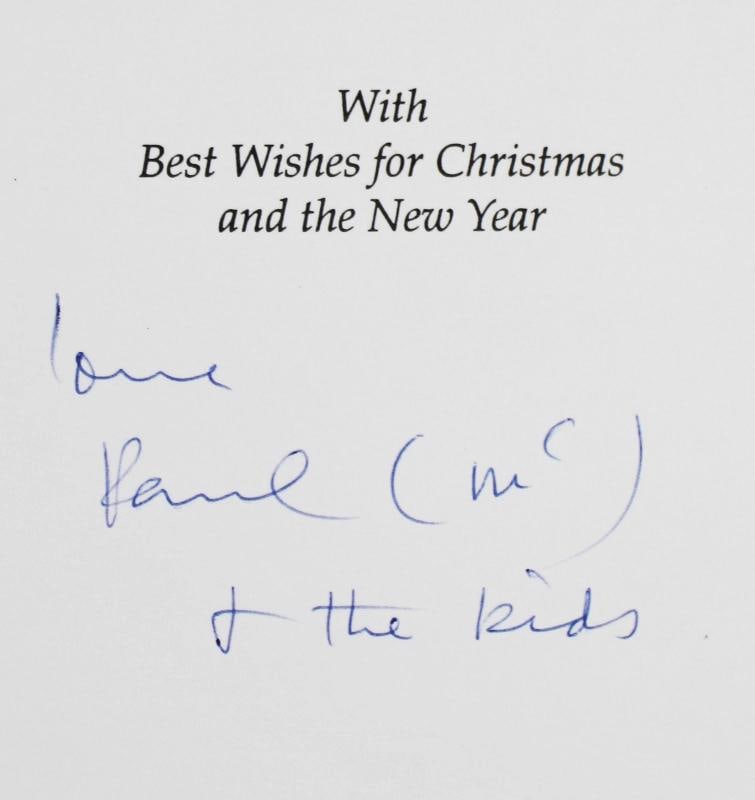 With
Best Wishes for Christmas
and the New Year
love
Paul (Mc)
+ the kids